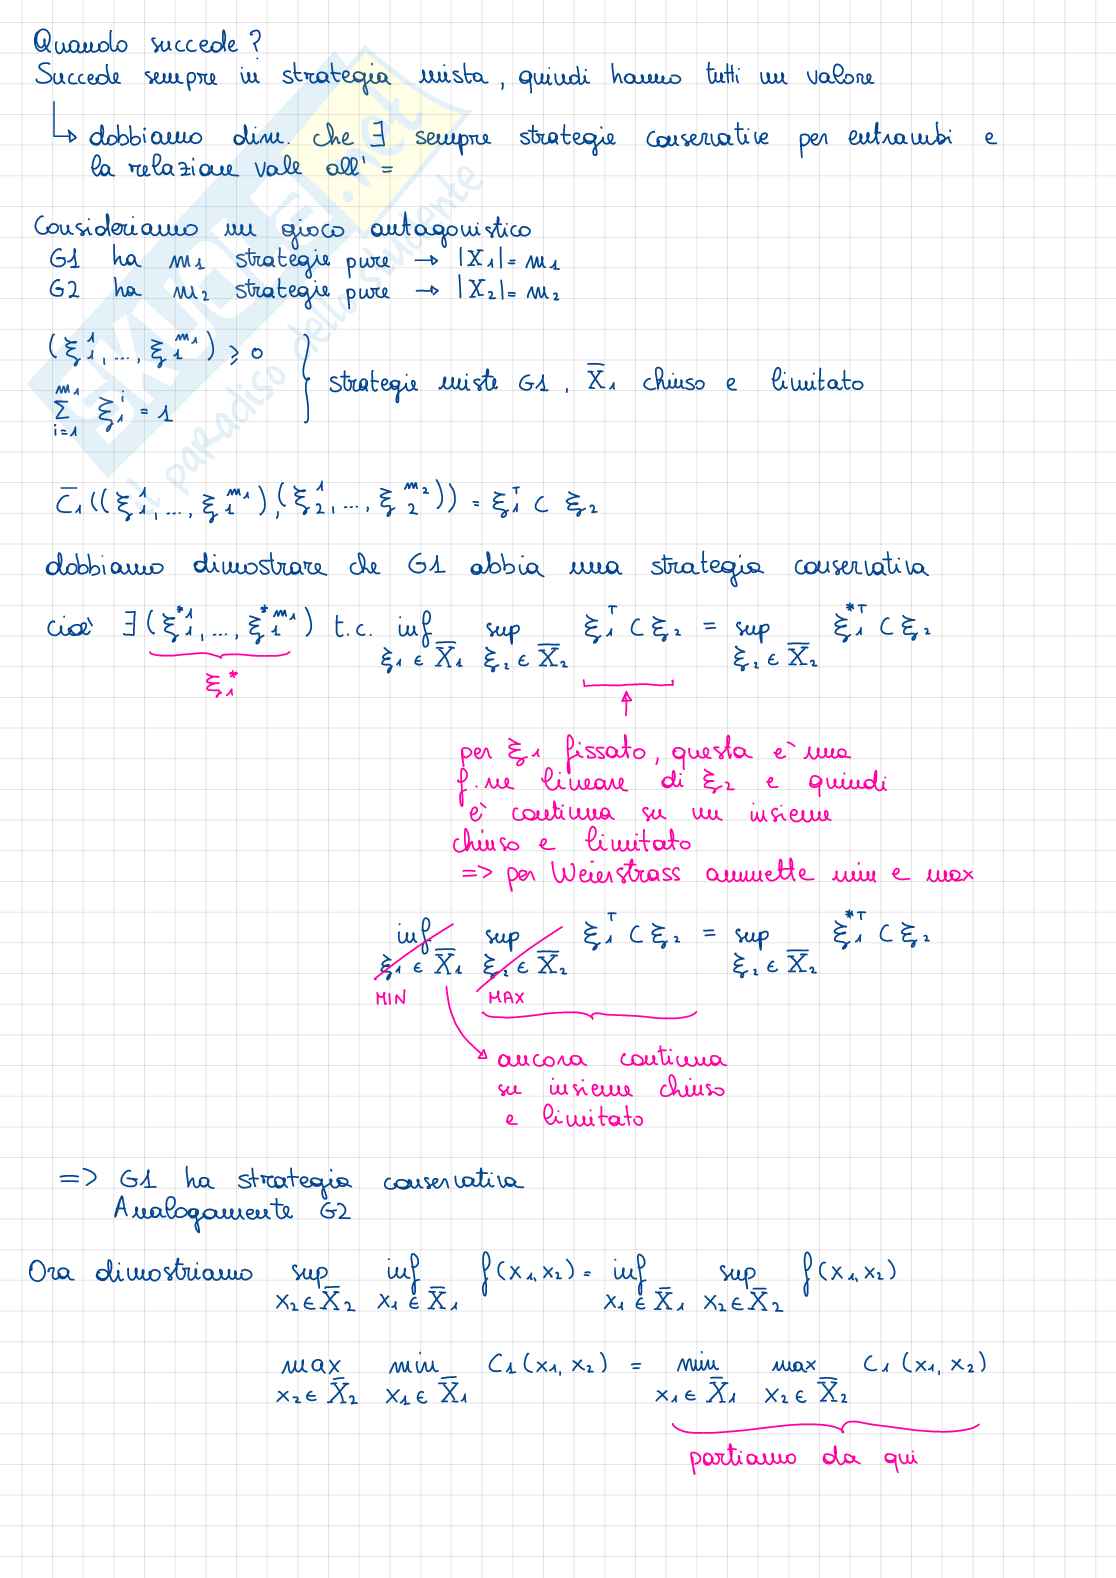 Quando succede?
Succede sempre in strategia mista, quindi hanno tutti un valore
↳ dobbiamo dim. che ∃ sempre strategie conservative per entrambi e
la relazione vale all' =
Consideriamo un gioco antagonistico
G1 ha m₁ strategie pure → |X₁| = m₁
G2 ha m₂ strategie pure → |X₂| = m₂
(ξ₁¹, ..., ξ₁^m₁) ≥ 0
∑_{i=1}^{m₁} ξ₁^i = 1
strategie miste G1, X̄₁ chiuso e limitato
C̄₁((ξ₁¹, ..., ξ₁^m₁),(ξ₂¹, ..., ξ₂^m₂)) = ξ₁ᵀ C ξ₂
dobbiamo dimostrare che G1 abbia una strategia conservativa
cioè ∃ (ξ₁*¹, ..., ξ₁*^m₁) t.c. inf_{ξ₁ ∈ X̄₁} sup_{ξ₂ ∈ X̄₂} ξ₁ᵀ C ξ₂ = sup_{ξ₂ ∈ X̄₂} ξ₁*ᵀ C ξ₂
ξ₁*
per ξ₁ fissato, questa è una
f.ne lineare di ξ₂ e quindi
è continua su un insieme
chiuso e limitato
=> per Weierstrass ammette min e max
inf_{ξ₁ ∈ X̄₁} sup_{ξ₂ ∈ X̄₂} ξ₁ᵀ C ξ₂ = sup_{ξ₂ ∈ X̄₂} ξ₁*ᵀ C ξ₂
MIN MAX
ancora continua
su insieme chiuso
e limitato
=> G1 ha strategia conservativa
Analogamente G2
Ora dimostriamo sup_{x₂ ∈ X̄₂} inf_{x₁ ∈ X̄₁} f(x₁, x₂) = inf_{x₁ ∈ X̄₁} sup_{x₂ ∈ X̄₂} f(x₁, x₂)
max_{x₂ ∈ X̄₂} min_{x₁ ∈ X̄₁} C₁(x₁, x₂) = min_{x₁ ∈ X̄₁} max_{x₂ ∈ X̄₂} C₁(x₁, x₂)
partiamo da qui
SKUOLA.net
il paradiso dello studente